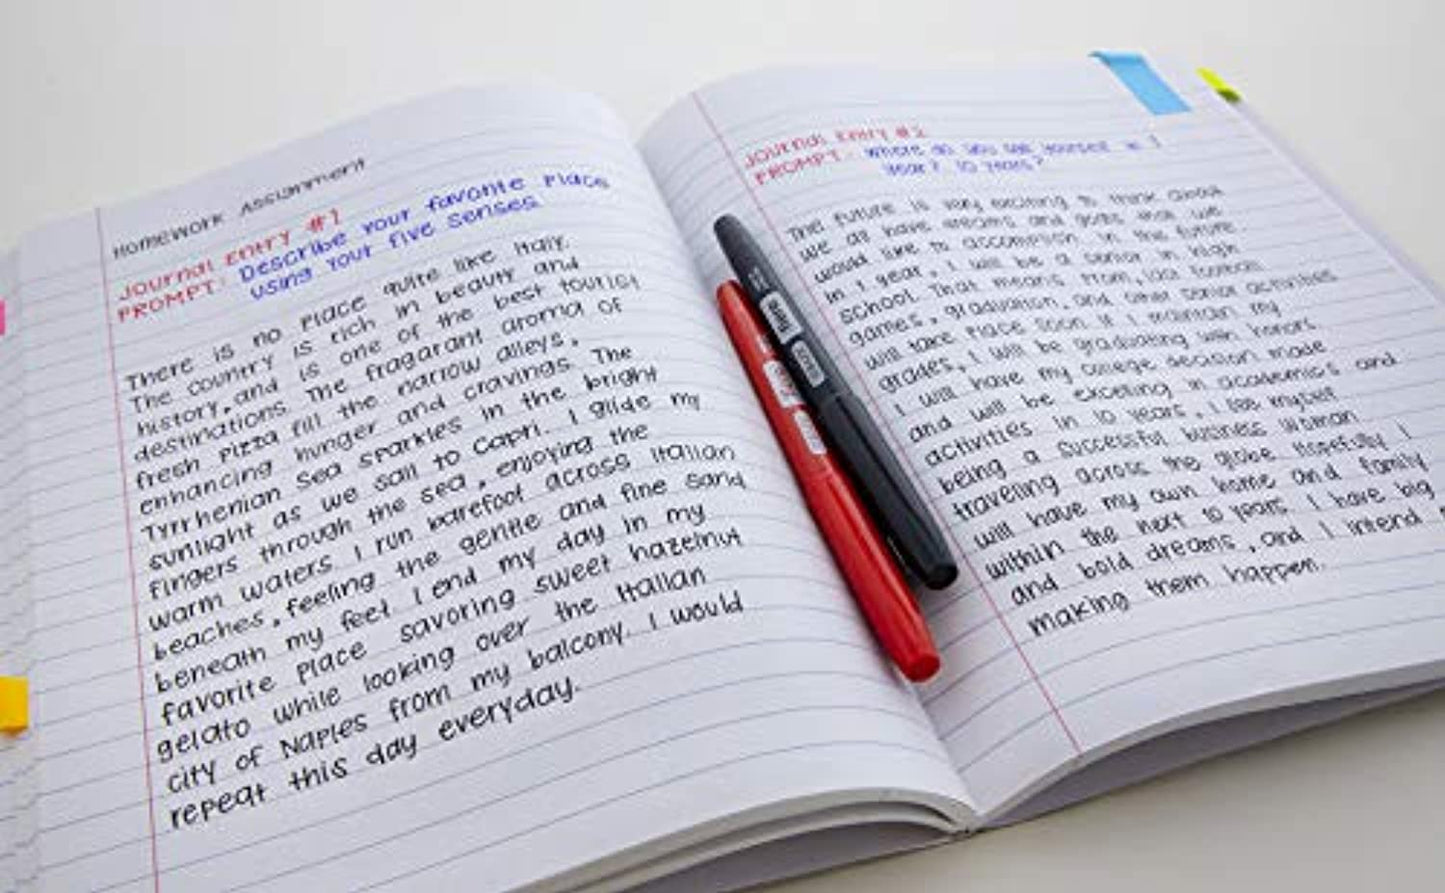 Homework Assignment
Journal Entry #1
PROMPT: Describe your favorite place
using your five senses
There is no place quite like Italy.
The country is rich in beauty and
history, and is one of the best tourist
destinations. The fragarant aroma of
fresh pizza fill the narrow alleys,
enhancing hunger and cravings. The
Tyrrhenian Sea sparkles in the bright
sunlight as we sail to Capri. I glide my
fingers through the sea, enjoying the
warm waters. I run barefoot across Italian
beaches, feeling the gentle and fine sand
beneath my feet. I end my day in my
favorite place savoring sweet hazelnut
gelato while looking over the Italian
city of Naples from my balcony. I would
repeat this day everyday.
Journal Entry #2
PROMPT: Where do you see yourself in 1
year? 10 years?
The future is very exciting to think about
We all have dreams and goals that we
would like to accomplish in the future.
In 1 year, I will be a senior in high
school. That means prom, last football
games, graduation, and other senior activities
will take place soon. If I maintain my
grades, I will be graduating with honors.
I will have my college decision made
and will be excelling in academics and
activities. In 10 years, I see myself
being a successful business woman
traveling across the globe. Hopefully I
will have my own home and family
within the next 10 years. I have big
and bold dreams, and I intend
making them happen.